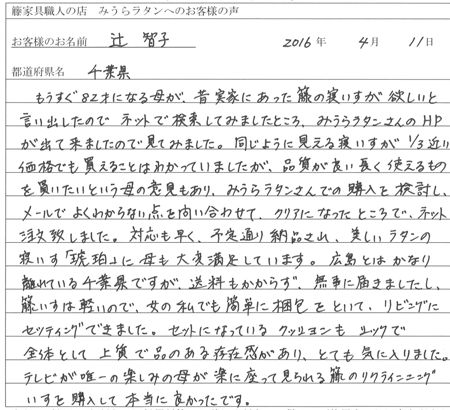 籐家具職人の店 みうらラタンへのお客様の声
お客様のお名前 辻 智子 2016年 4月 11日
都道府県名 千葉県
もうすぐ82才になる母が、昔実家にあった籐の寝いすが欲しいと
言い出したので ネットで検索してみましたところ、みうらラタンさんのHP
が出て来ましたので見てみました。同じように見える寝いすが1/3近い
価格でも買えることはわかっていましたが、品質が良い長く使えるもの
を買いたいという母の意見もあり、みうらラタンさんでの購入を検討し、
メールでよくわからない点を問い合わせて、クリアになったところで、ネット
注文致しました。対応も早く、予定通り納品され、美しいラタンの
寝いす「琥珀」に母も大変満足しています。広島とはかなり
離れている千葉県ですが、送料もかからず、無事に届きましたし、
籐いすは軽いので、女の私でも簡単に梱包をといて、リビングに
セッティングできました。セットになっているクッションもシックで
全体として上質で品のある存在感があり、とても気に入りました。
テレビが唯一の楽しみの母が楽に座って見られる籐のリクライニング
いすを購入して本当に良かったです。